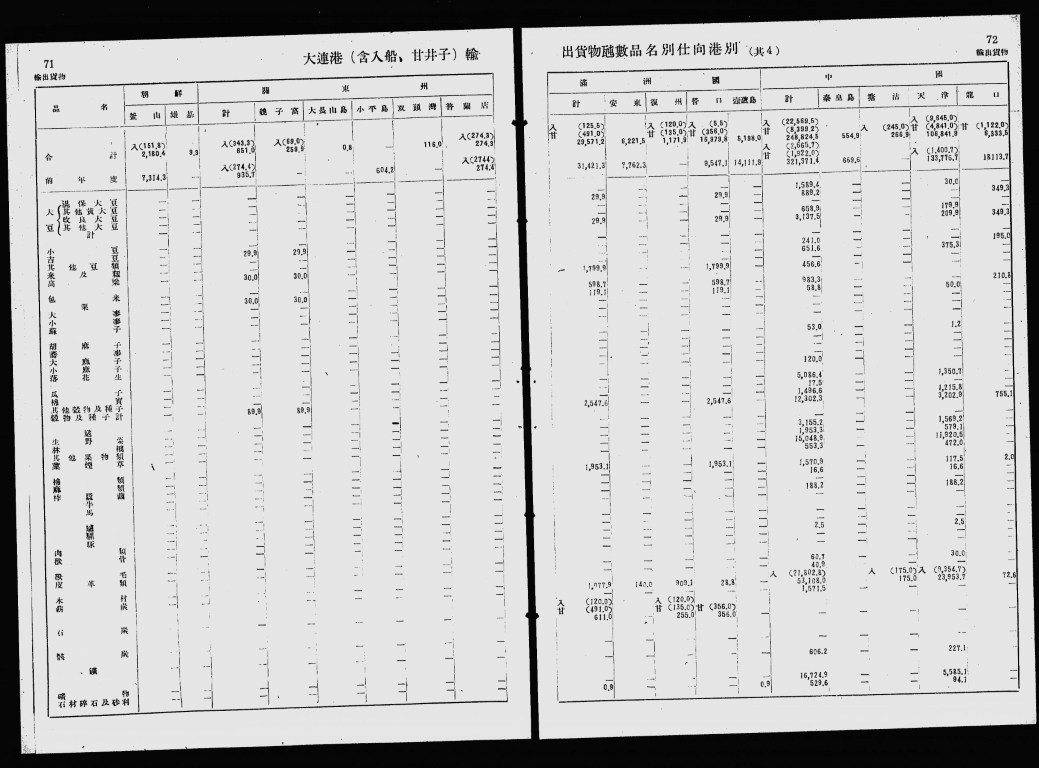 71
輸出貨物
大連港（含入船、甘井子）輸
品 名
朝 鮮
關 東 州
釜 山
雄 基
計
貔 子 窩
大長山島
小平島
双 頭 灣
普 蘭 店
合 計
入(151,8)
2,180,4
9,3
入(343,3)
651,0
入(69,0)
259,9
0,8
116,0
入(274,3)
274,3
前 年 度
7,314,3
入(274,4)
935,7
604,2
入(2744)
274,4
大豆
混 保 大 豆
其 他 黃 大 豆
改 良 大 豆
其 他 大 豆
計
小 豆
吉 豆
29,9 29,9
其 他 豆 類
米 及 糎
高 粱
30,0 30,0
包 米
粟
30,0 30,0
大 麥
小 麥
蘇 子
胡 麻 子
蕎 麥
大 麻 子
小 麻 子
落 花 生
瓜 子
棉 實
其 他 穀 物 及 種 子
穀 物 及 種 子 計
89,9 89,9
生 野 菜
林 檎
其 他 果 物 類
葉 煙 草
牛
馬
驢
豚
肉 類
獸 骨
獸 毛
皮 革 類
木 材
石 炭
骸 炭
鐵
礦 物
石 材 碎 石 及 砂 利
72
輸出貨物
出貨物噸數品名別仕向港別（其4）
滿 洲 國
中 國
計
安 東
復 州
營 口
壺蘆島
計
秦皇島
塘 沽
天 津
龍 口
入 (125,5)
甘 (491,0)
29,571,2
6,221,5
入 (120,0)
甘 (135,0)
1,171,9
入 (5,5)
甘 (356,0)
16,979,8
5,198,0
入 (22,569,5)
甘 (8,399,2)
248,824,5
554,9
入 (245,0)
266,9
入 (9,645,0)
甘 (4,841,0)
106,841,9
甘 (1,122,0)
6,833,5
31,421,3
7,762,3
9,547,1
14,111,9
入 (2,665,7)
甘 (1,922,0)
321,371,4
669,6
入 (1,400,7)
133,776,7
18113,7
1,589,4 30,0
29,9 29,9 889,2 349,3
659,9 179,9
29,9 29,9 3,137,5 209,9 349,3
241,0 195,0
651,6 375,3
1,799,9 1,799,9 456,6
598,7 598,7 983,3 210,8
119,1 119,1 58,8 50,0
53,0 1,2
120,0
5,086,4 1,350,7
17,5
1,496,6 1,215,8
2,547,6 2,547,6 12,302,3 3,202,9 755,1
3,155,2 1,569,2
1,953,3 579,1
15,048,9 11,920,5
553,3 472,0
1,953,1 1,953,1 1,570,9 117,5 2,0
16,6 16,6
188,2 188,2
2,5 2,5
60,7 30,0
40,9
入 (21,802,8) 入 (175,0) 入 (9,354,7)
1,077,9 140,0 909,1 28,8 53,108,0 175,0 23,953,7 72,6
1,571,5
入 (120,0) 入 (120,0)
甘 (491,0) 甘 (135,0) 甘 (356,0)
611,0 255,0 356,0
606,2 227,1
16,724,9 5,585,1
0,9 0,9 529,6 94,1